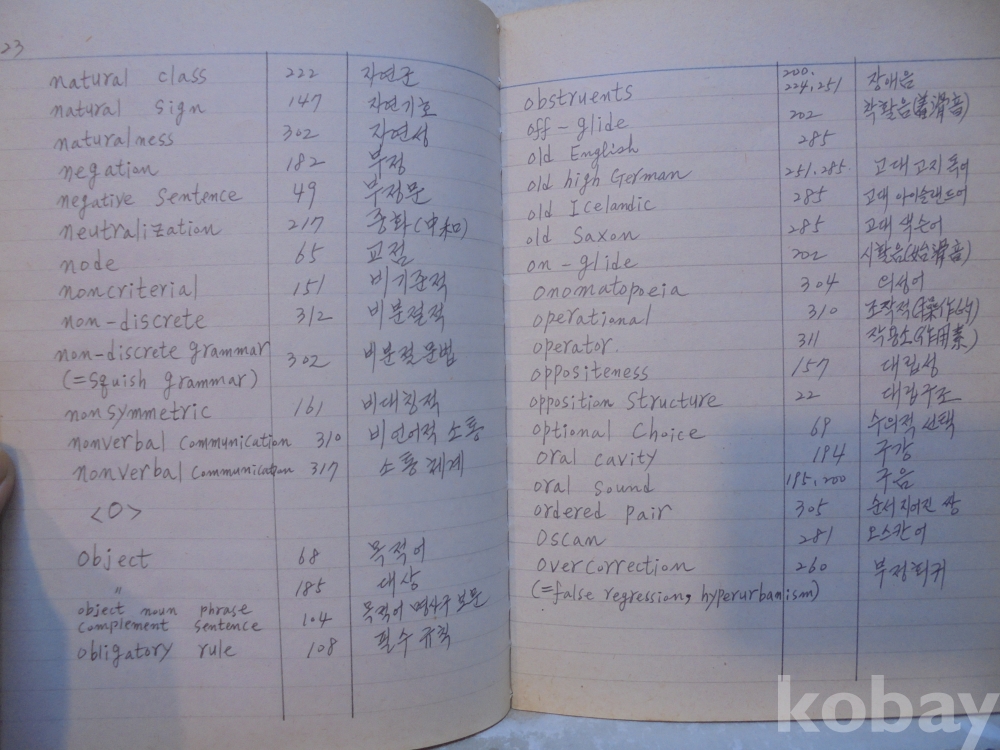 23
natural class 222 자연군
natural sign 147 자연기호
naturalness 302 자연성
negation 182 부정
negative sentence 49 부정문
neutralization 217 중화(中和)
node 65 교점
noncriterial 151 비기준적
non-discrete 312 비분절적
non-discrete grammar 302 비분절문법
(=Squish grammar)
nonsymmetric 161 비대칭적
nonverbal communication 310 비언어적 소통
nonverbal communication 317 소통체계
<O>
Object 68 목적어
〃 185 대상
object noun phrase
complement sentence 104 목적어 명사구 보문
obligatory rule 108 필수규칙
obstruents 200. 224, 251 장애음
off-glide 202
old English 285
old high German 251, 285. 고대고지독어
old Icelandic 285 고대 아이슬랜드어
old Saxon 285 고대 색슨어
on-glide 202 시활음(始滑音)
Onomatopoeia 304 의성어
operational 310 조작적(操作的)
operator. 311 작용소(作用素)
oppositeness 157 대립성
opposition structure 22 대립구조
optional choice 69 수의적 선택
oral cavity 194 구강
oral sound 195, 200 구음
ordered pair 305 순서지어진 쌍
Oscan 281 오스칸어
Overcorrection 260 부정회귀
(=false regression, hyperurbanism)
kobay